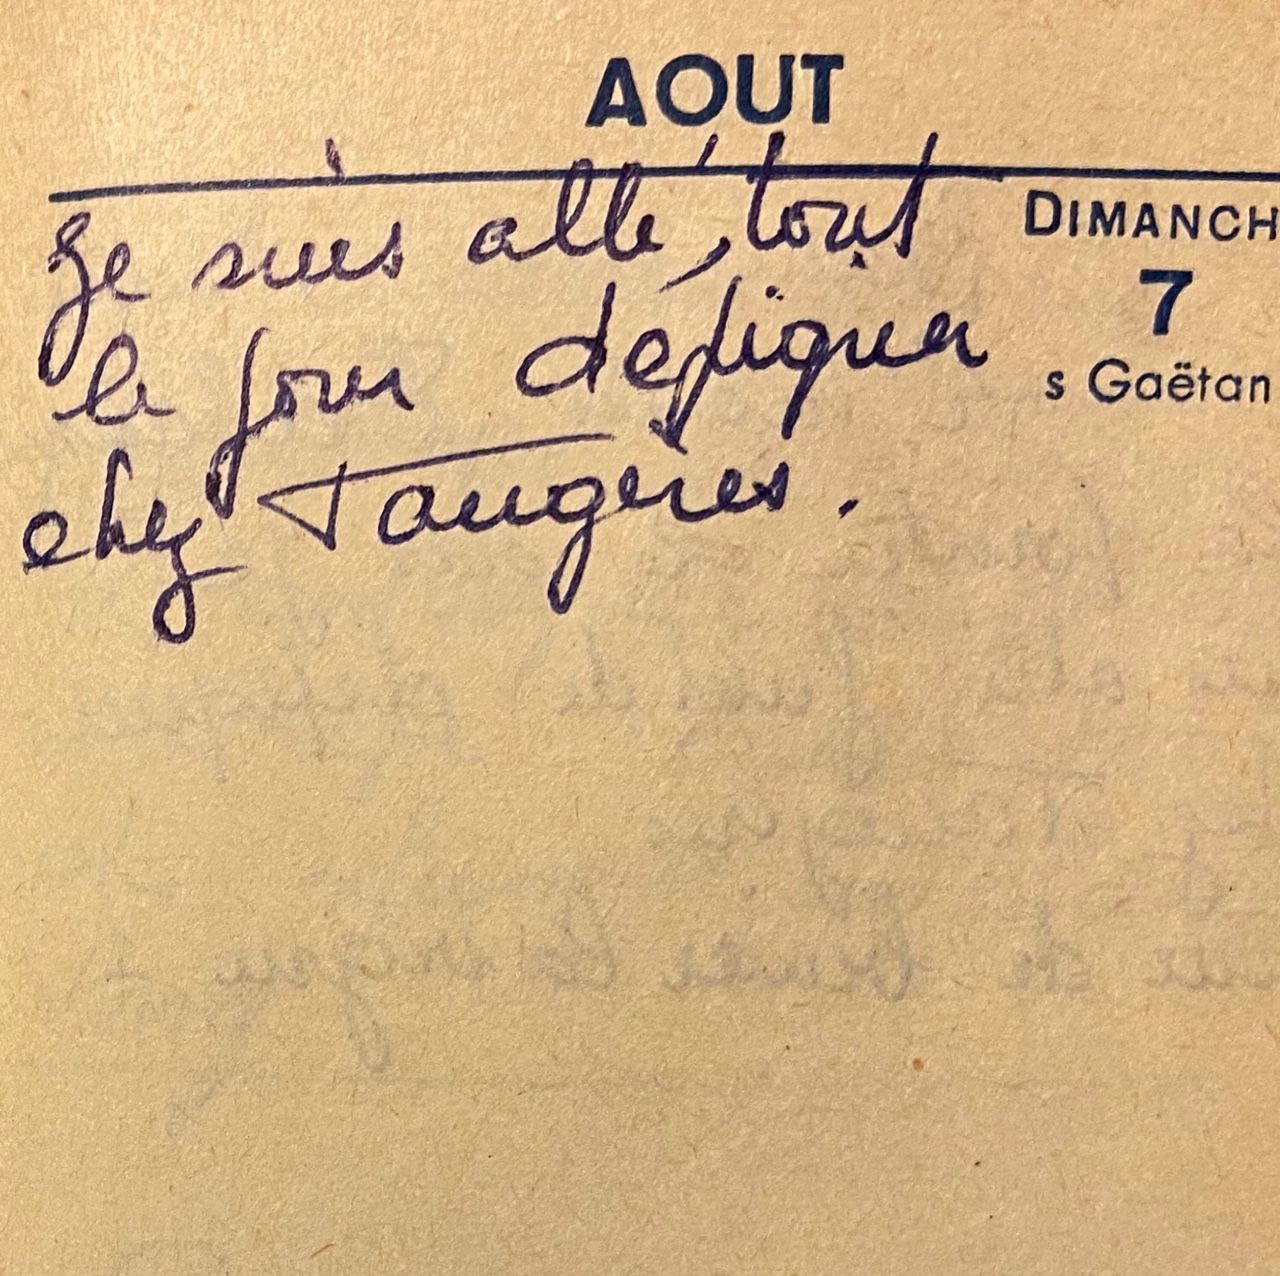 AOUT
DIMANCH
7
s Gaëtan
Je suis allé, tout
le jour dépiquer
chez Taugères.